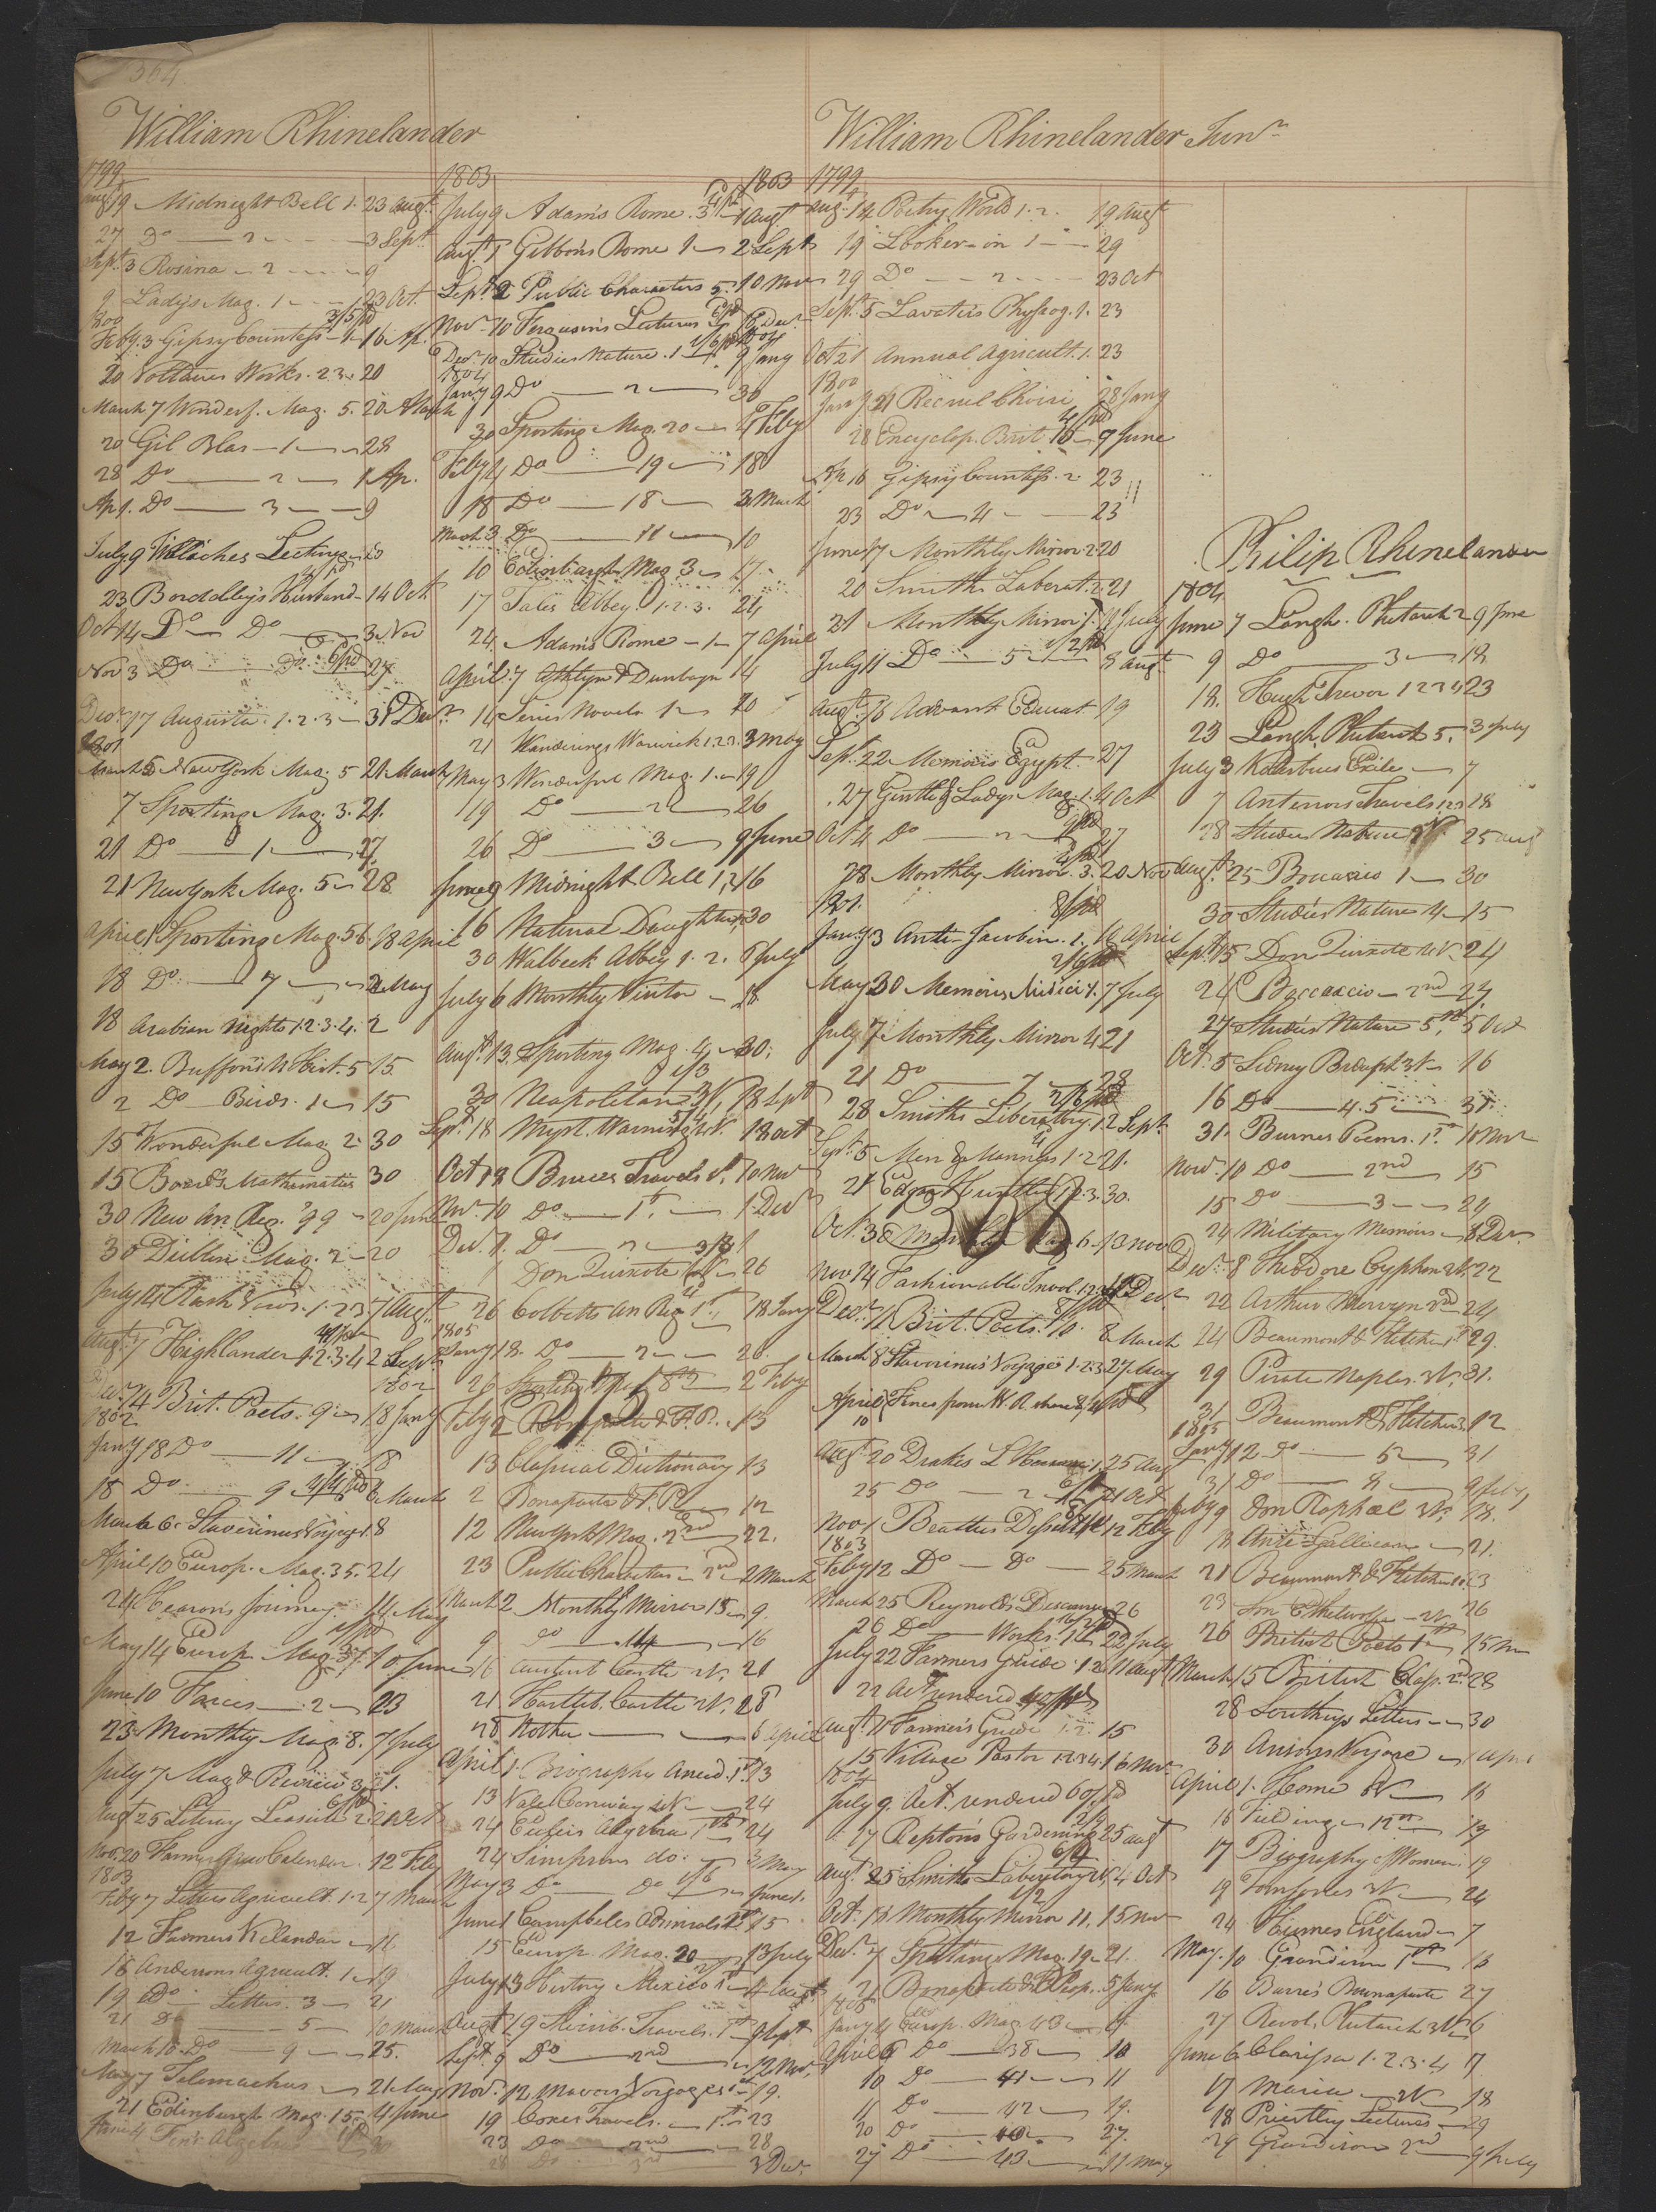 564.
William Rhinelander
1799
Augt 19 Midnight Bell 1. 23 Augt
27 Do — 2 — 3 Sept
Sept. 3 Rosina — 2 — 9
9 Ladys Mag. 1 — 23 Oct.
1800
Feby. 3 Gipsy Countess — 1 — 16 Ap.
20 Voltaires Works. 23. 20
March 7 Wonderf. Mag. 5. 20 March
20 Gil Blas — 1 — 28
28 Do — 2 — 1 Ap.
Ap 1. Do — 3 — 9
July 9 Lectures
23 Bordelley's Husband — 14 Oct
Oct 14 Do — Do — 3 Nov
Nov 3 Do — Do 6/pd 27
Decr 17 Augusta. 1.2.3 — 31 Decr
1801
March 5 New York Mag. 5 21 March
7 Sporting Mag. 3. 21.
21 Do — 1 — 27
21 New York Mag. 5 — 28
April 1 Sporting Mag. 5 6. 18 April
18 Do — 7 — 2 May
18 Arabian Nights 1.2.3.4. 2
May 2. Buffon's N Hist. 5 15
2 Do — Birds. 1 — 15
15 Wonderful Mag. 2 30
15 Mathematics 30
30 New An Reg. '99 — 20 June
30 Mag. 2 — 20
July 14 Rash Vows. 1.2.3. 7 Augt
Augt 7 Highlander 1.2.3.4 2 Sept
1802
Decr. 14 Brit. Poets. 9 — 18 Jany
1802
Jany 18 Do — 11 — 18
18 Do — 9 4/pd 6 March
March 6. Stavorinus Voyage 1. 8
April 10 Europ. Mag. 35. 24
24 Hearon's Journey. 14 May
May 14 Europ. Mag. 37. 10 June
June 10 Farces — 2 — 23
23 Monthly Mag. 8. 7 July
July 7 Mag & Review 3. 21.
Augt 25 Litrary Leasure 2. 21 Oct
Nov. 20 Farmers Calendar. 12 Feby
1803
Feby 7 Letters Agricult. 1.2 7 March
12 Farmers Kalandar — 16
16 Andersons Agricult. 1 — 19
19 Do — Letters. 3 — 21
21 Do — 5 — 10 March
March 10. Do — 9 — 25.
May 7 Telemachus — 21 May
21 Edinburgh Mag. 15. 4 June
June 4 Algebra 30
1803 1803
July 9 Adams Rome. 3 — 1 Augt
Augt 1 Gibbons Rome 1 — 2 Sept
Sept. 2 Public Characters 5. 10 Nov
Novr. 10 Ferguson's Lectures 10 Decr.
Decr. 10 Studies Nature. 1 — 9 Jany
1804
Jany 9 Do — 2 — 30
30 Sporting Mag. 20 — 4 Feby
Feby 4 Do — 19 — 18
18 Do — 18 — 3 March
March 3 Do — 11 — 10
10 Edinburgh Mag. 3 — 17
17 Tales Abbey. 1.2.3. 24
24. Adam's Rome — 1 — 7 April
April. 7 Athlyn & Dunbayn 14
14 Series Novels 1 — 20
21 Wanderings Warwick 1.2.3. 3 May
May 3 Wonderful Mag. 1. — 19
19 Do — 2 — 26
26 Do — 3 — 9 June
June 9 Midnight Bell 1,2 16
16 Natural Daughter, 30
30 Walbeck Abbey 1. 2. 6 July
July 6 Monthly Visitor — 18
Augt. 13. Sporting Mag. 4, — 30,
1/3
30 Neapolitan 3V, 18 Sept
Sept. 18 Myst. Warning 2V. 12 Oct
Oct 12 Bruces Travels 10 Nov
Novr. 10 Do — 1st — 1 Decr
Dec. 1. Do — 2 — 3/8 1
1 Don Quixote 26
26 Cobbetts An Regr 1st 18 Jany
1805
Jany 18. Do — 2 — 26.
26 Sporting Mag. 18th 2 Feby
Feby 2 Bonaparte & F. P. 13
13 Classical Dictionary 13
2 Bonaparte & F. P. — 12
12 New York Mag. 2nd 22.
23 Public Characters — 2nd 2 March
March 2 Monthly Mirror 15 — 9.
9 Do — 14 — 16
16 Castle 2V. 21
21 Hartleb. Castle 2V. 28
28 Mother — 6 April
April 1. Biography Anecd. 1st 13
13 Vale Conway 2V — 24
24 Eulers Algebra 1st 24
24 Simpsons do. — 3 May
May 3 Do — do 1/6 — June 1
June 1 Campbels Admirals 15
15 Europ. Mag. 20 — 13 July
July 13 History Mexico 1st 4 Augt
Augt 19 Travels. 1st 9 Sept
Sept. 9 Do — 2nd — 12 Nov.
Novr. 12 Mavors Voyages 1st 19.
19 Coxes Travels. — 1st 23
23 Do — 2nd — 28
28 Do — 3rd 3 Dec.
William Rhinelander Junr
1799
Augt. 14 Poetry World 1. 2. 19 Augt
19 Looker-on 1 — 29
29 Do — 2 — 23 Oct
Sept. 5 Lavater's Physiog. 1. 23
Oct 21 Annual Agricult. 1. 23
1800
Jany 21 Recueil Choisi 28 Jany
28 Encyclop. Brit 16 — 7 June
Ap 16 Gipsy Countess. 2. 23
23 Do — 4 — 23
June 17 Monthly Mirror. 2. 20
20 Smiths Laborat. 2. 21
21 Monthly Mirror 11 July
July 11 Do — 5 — 8 Augt
Augt. 16 Advant Educat 19
Sept. 22 Memoirs Egypt. 27
27 Gentle & Ladys Mag. 1. 4 Oct
Oct. 4 Do — 2 — 27
28 Monthly Mirror. 3. 20 Nov
1801.
Jany 3 Anti-Jacobin. 1. 10 April
May 30 Memoirs 1. 7 July
July 7 Monthly Mirror 4. 21
21 Do — 7 — 28
28 Smiths Liberatory. 1. 2 Sept.
Sept. 5 Men & Manners 1.2 21.
21 Edgar Huntley 1.2.3. 30.
Oct. 30 Mag. 6 — 13 Nov
Nov 14 Fashionable Invol. 1.2.3 Decr
Decr. 11 Brit. Poets. 10. 8 March
March 8 Stavorinus' Voyages 1.2.3 27 May
April 10 Fines from W. R.
Augt. 20 Drakes L Hours 1. 25 Aug
25 Do — 2 21 Oct
Nov 1 Beatties Dissert. 12 Feby
1803
Feby 12 Do — Do — 25 March
March 25 Reynolds's Discourses 26
26 Do — Works. 1st 22 July
July 22 Farmers Guide. 1.2. 11 Augt
22 Act rendered 40/pd
Augt. 11 Farmers Guide 1.2. 15
15 Village Pastor 1.2.3.4. 16 Nov.
1804
July 9. Act. rendered 60/pd
17 Repton's Gardening 25 Augt
Augt. 25 Smiths Laboratory 2V, 4 Oct
Oct. 18 Monthly Mirror 11. 15 Nov
Decr. 7 Sporting Mag. 19 — 21.
21 Bonaparte & F. Peop. 5 Jany.
1805
Jany 4 Europ. Mag. 43 — 9.
April 6 Do — 38 — 10
10 Do — 41 — 11
11 Do — 42 — 19.
20 Do — 40 — 27.
27 Do — 43 — 11 May
Philip Rhinelander
1804
June 7 Langh. Plutarch 2 9 June
9 Do — 3 — 18
18. Hugh Trevor 1 2 3 4 23
23 Langh. Plutarch 5. 3 July
July 3 Kotzebues Exile — 7
7 Antenors Travels 1.2.3 28
28 Studies Nature 25 Aug
Augt. 25 Boccacio 1 — 30
30 Studies Nature 4 — 15
Sept. 15 Don Quixote 4V. 24
24 Boccaccio — 2nd 27.
27 Studies Nature 5, 5 Oct
Oct. 5 Sidney Bidulph 3V — 16
16 Do — 4.5 — 31.
31. Burnes Poems. 1st 10 Nov
Novr. 10 Do — 2nd — 15
15 Do — 3 — 24
24 Military Memoirs — 8 Decr.
Decr. 8 Theodore Cyphon 2V. 22
22 Arthur Mervyn 2nd 24
24 Beaumont & Fletcher 1st 29.
29 Pirate Naples. 3V. 31.
31 Beaumont & Fletcher 3. 12
1805
Jany 12 Do — 5 — 31
31 Do — 8 — 9 Feby
Feby 9 Don Raphael 3V. 18.
18 Anti-Gallican — 21.
21 Beaumont & Fletcher 23
23 Ethelwolfe — 2V. 26
26 British Poets 1st 15 Mar
March 15 British Class. 2nd 28
28 Southeys Letters — 30
30 Ansons Voyage — 1 Apr
April 1. Home 5V — 16
16 Fielding — 12th 17
17 Biography of Women 19
19 Tom Jones 3V — 24
24 Humes England — 7
May. 10 Grandison 1st 16
16 Barre's Buonaparte 27
27 Revol. Plutarch 3V — 6
June 6 Clarissa 1.2.3.4 17
17 Maria — 2V — 18
18 Priestley Lectures — 29
29 Grandison 2nd — 9 July